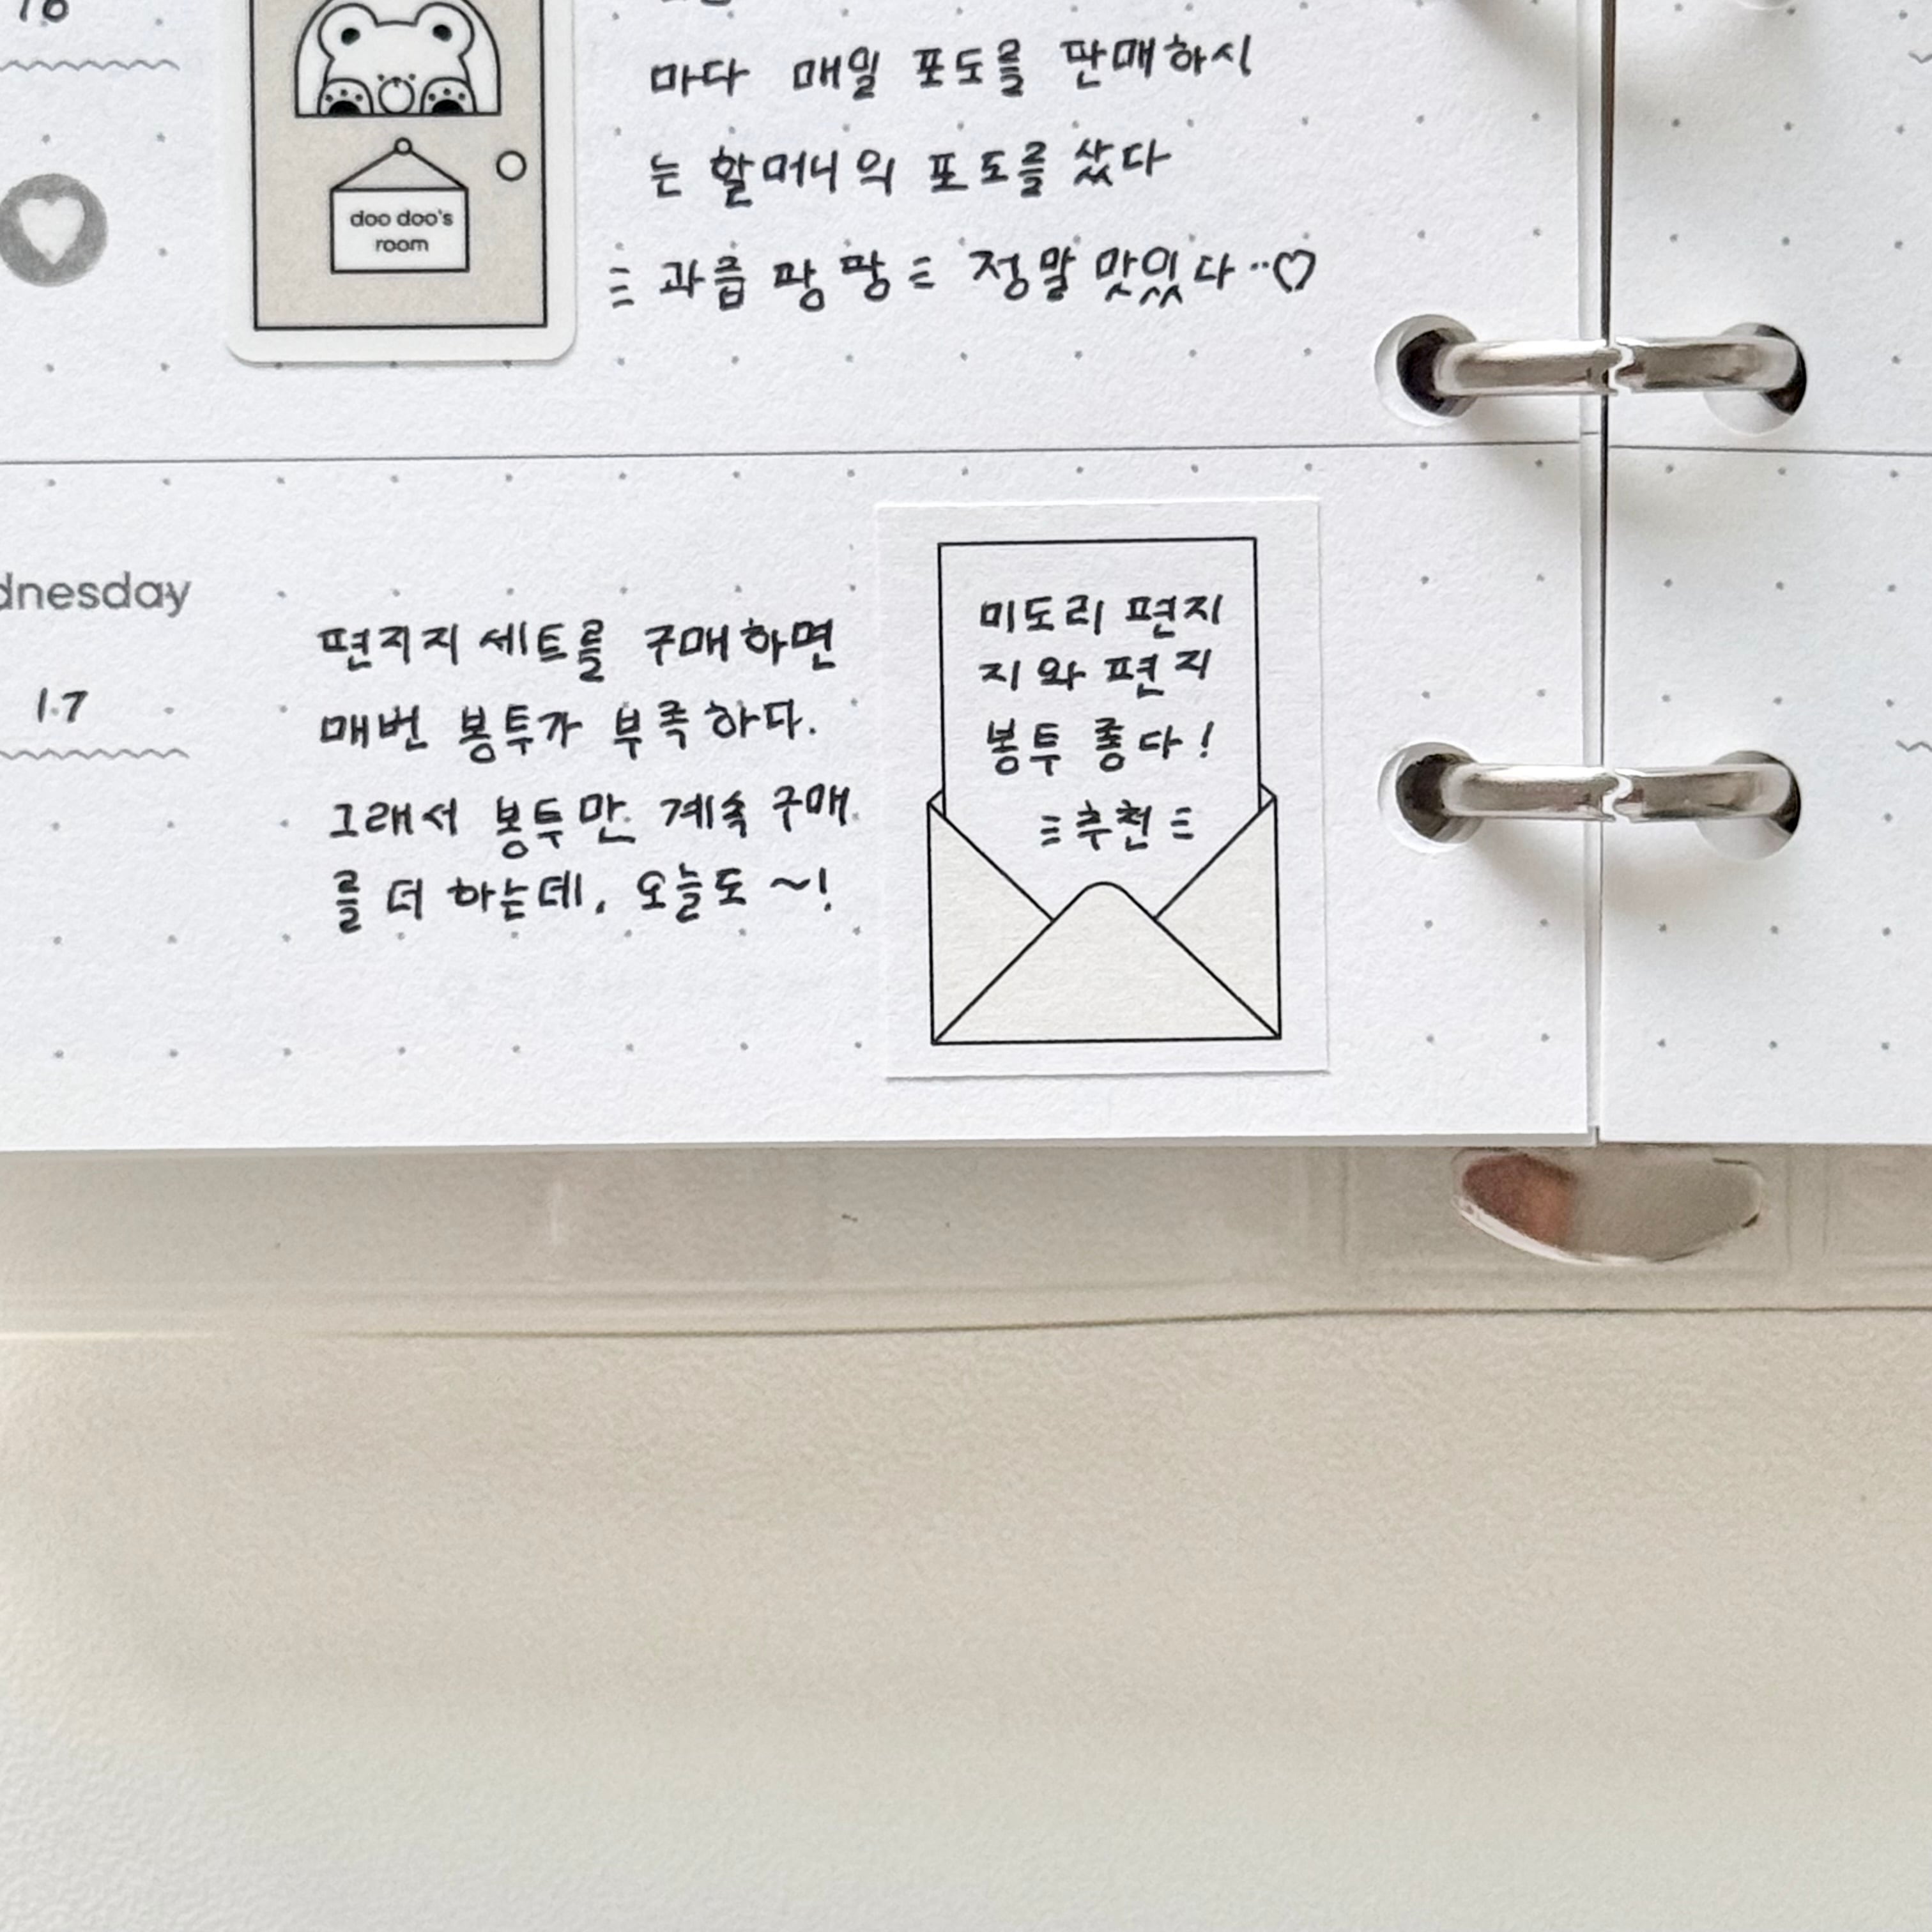 마다 매일 포도를 판매하시
는 할머니의 포도를 샀다
과즙 팡팡 정말 맛있다..♡
doo doo's
room
dnesday
17
편지지 세트를 구매하면
매번 봉투가 부족하다.
그래서 봉투만 계속 구매
를 더 하는데, 오늘도 ~!
미도리 편지
지와 편지
봉투 좋다!
추천